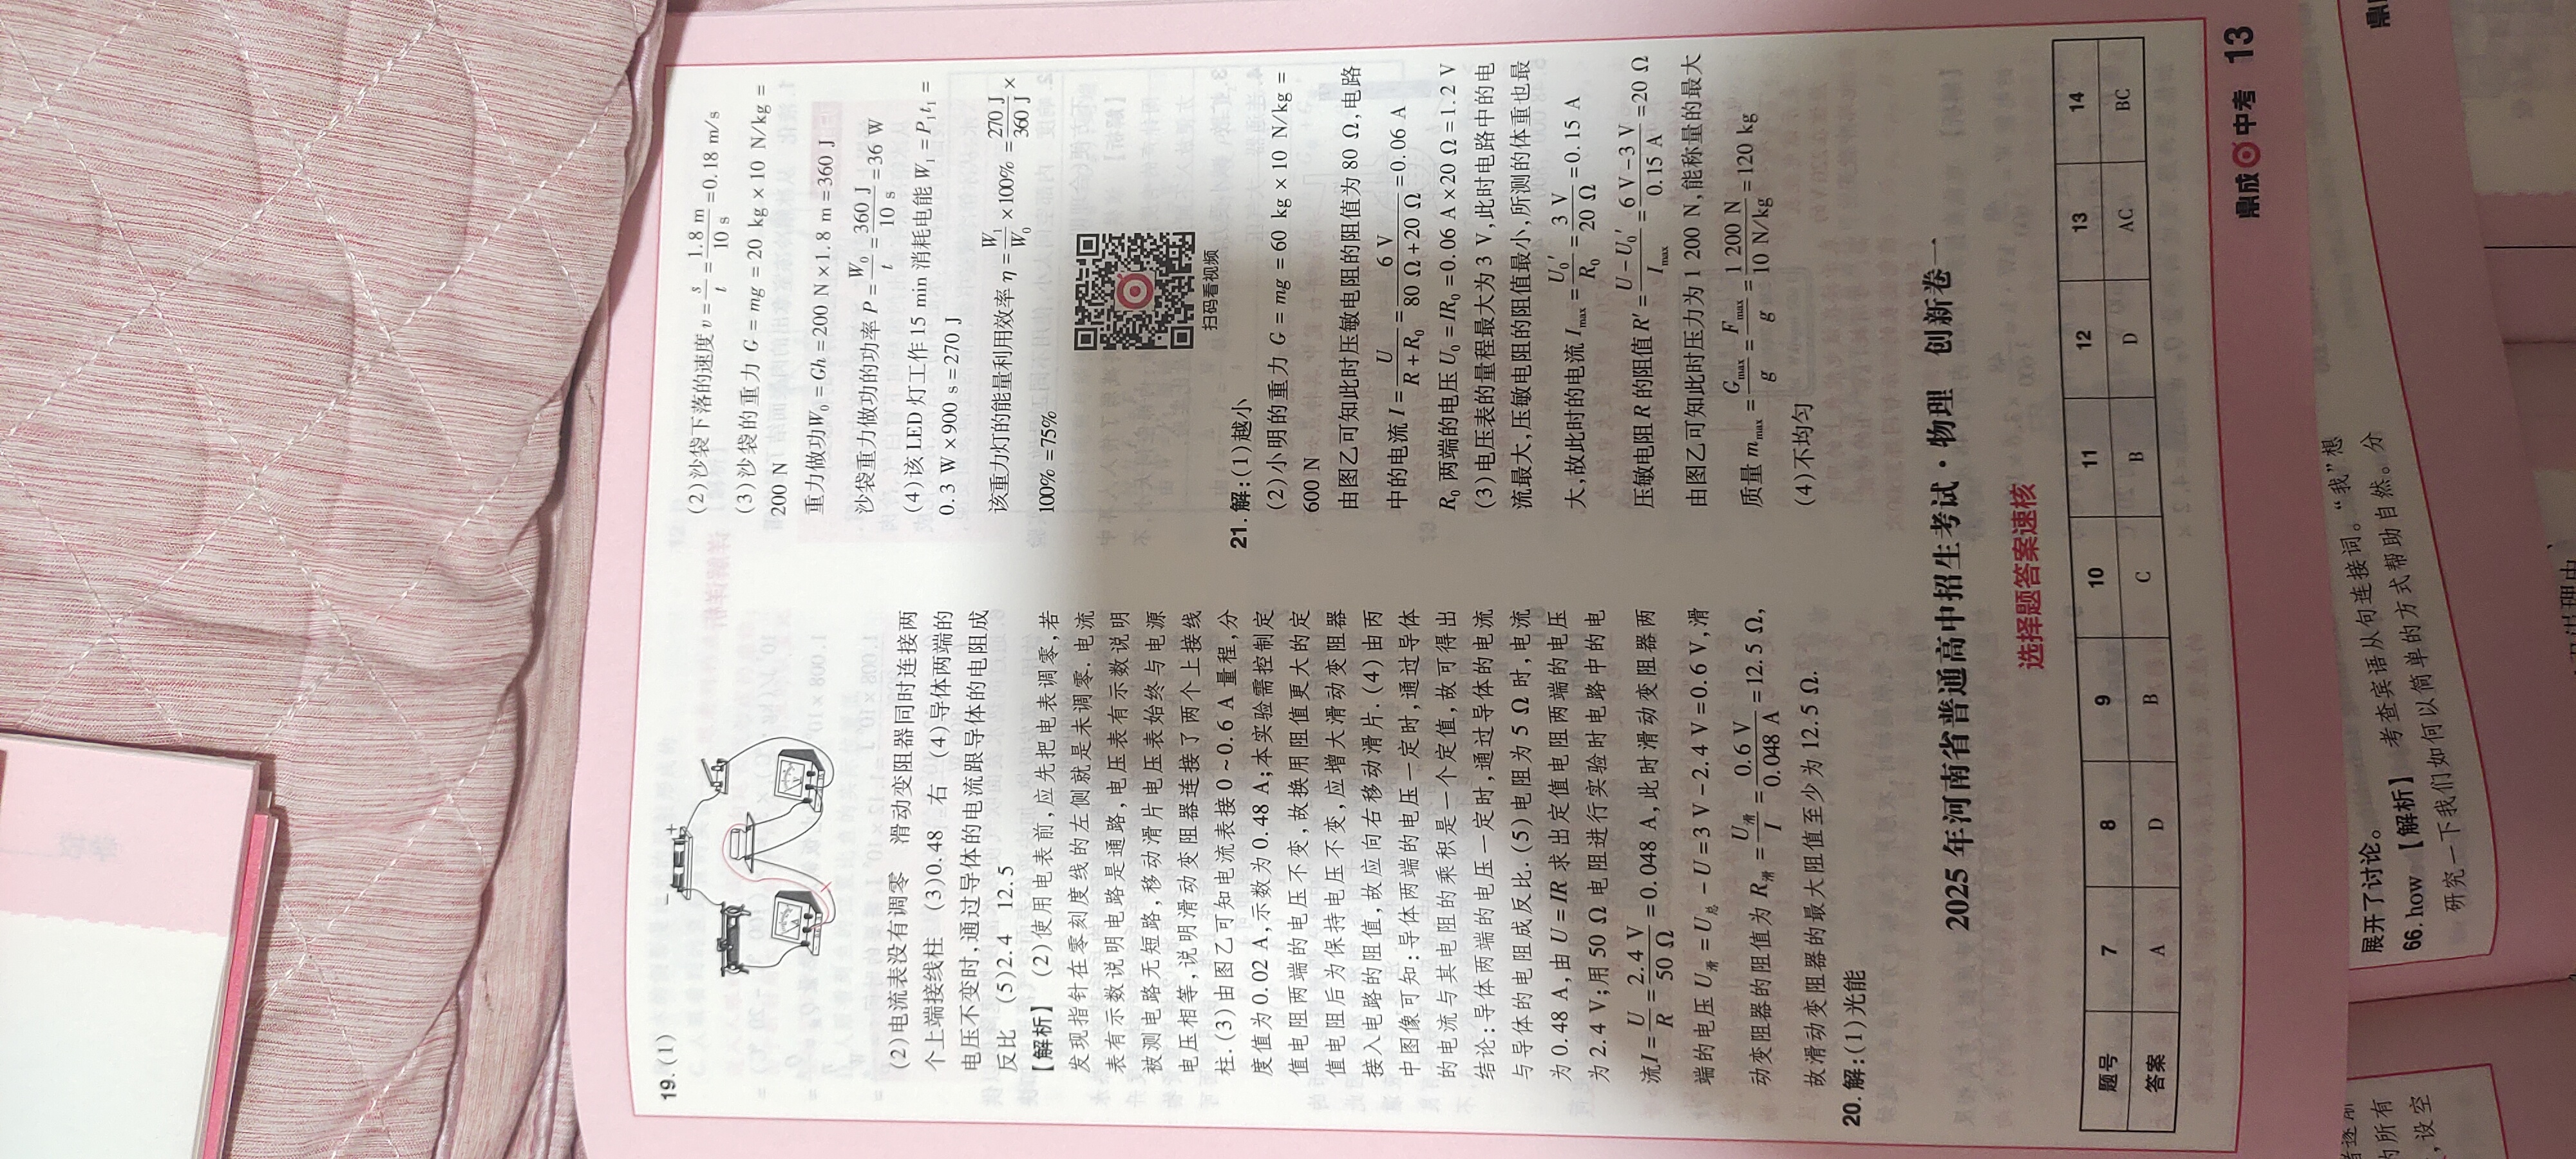 19.(1)
(2)电流表没有调零 滑动变阻器同时连接两
个上端接线柱 (3)0.48 右 (4)导体两端的
电压不变时,通过导体的电流跟导体的电阻成
反比 (5)2.4 12.5
【解析】(2)使用电表前,应先把电表调零,若
发现指针在零刻度线的左侧就是未调零.电流
表有示数说明电路是通路,电压表有示数说明
被测电路无短路,移动滑片电压表始终与电源
电压相等,说明滑动变阻器连接了两个上接线
柱.(3)由图乙可知电流表接0~0.6 A量程,分
度值为0.02 A,示数为0.48 A;本实验需控制定
值电阻两端的电压不变,故换用阻值更大的定
值电阻后为保持电压不变,应增大滑动变阻器
接入电路的阻值,故应向右移动滑片.(4)由丙
中图像可知:导体两端的电压一定时,通过导体
的电流与其电阻的乘积是一个定值,故可得出
结论:导体两端的电压一定时,通过导体的电流
与导体的电阻成反比.(5)电阻为5 Ω时,电流
为0.48 A,由U=IR求出定值电阻两端的电压
为2.4 V;用50 Ω电阻进行实验时电路中的电
流I=U/R=2.4 V/50 Ω=0.048 A,此时滑动变阻器两
端的电压U滑=U总-U=3 V-2.4 V=0.6 V,滑
动变阻器的阻值为R滑=U滑/I=0.6 V/0.048 A=12.5 Ω,
故滑动变阻器的最大阻值至少为12.5 Ω.
20.解:(1)光能
(2)沙袋下落的速度v=s/t=1.8 m/10 s=0.18 m/s
(3)沙袋的重力G=mg=20 kg×10 N/kg=
200 N
重力做功W₀=Gh=200 N×1.8 m=360 J
沙袋重力做功的功率P=W₀/t=360 J/10 s=36 W
(4)该LED灯工作15 min消耗电能W₁=P₁t₁=
0.3 W×900 s=270 J
该重力灯的能量利用效率η=W₁/W₀×100%=270 J/360 J×
100%=75%
扫码看视频
21.解:(1)越小
(2)小明的重力G=mg=60 kg×10 N/kg=
600 N
由图乙可知此时压敏电阻的阻值为80 Ω,电路
中的电流I=U/(R+R₀)=6 V/(80 Ω+20 Ω)=0.06 A
R₀两端的电压U₀=IR₀=0.06 A×20 Ω=1.2 V
(3)电压表的量程最大为3 V,此时电路中的电
流最大,压敏电阻的阻值最小,所测的体重也最
大,故此时的电流Imax=U₀′/R₀=3 V/20 Ω=0.15 A
压敏电阻R的阻值R′=(U-U₀′)/Imax=(6 V-3 V)/0.15 A=20 Ω
由图乙可知此时压力为1 200 N,能称量的最大
质量mmax=Gmax/g=Fmax/g=1 200 N/10 N/kg=120 kg
(4)不均匀
2025年河南省普通高中招生考试·物理 创新卷一
选择题答案速核
题号 7 8 9 10 11 12 13 14
答案 A D B C B D AC BC
鼎成中考 13
展开了讨论。
66.how 【解析】考查宾语从句连接词。“我”想
研究一下我们如何以简单的方式帮助自然。分
的所有
,设空